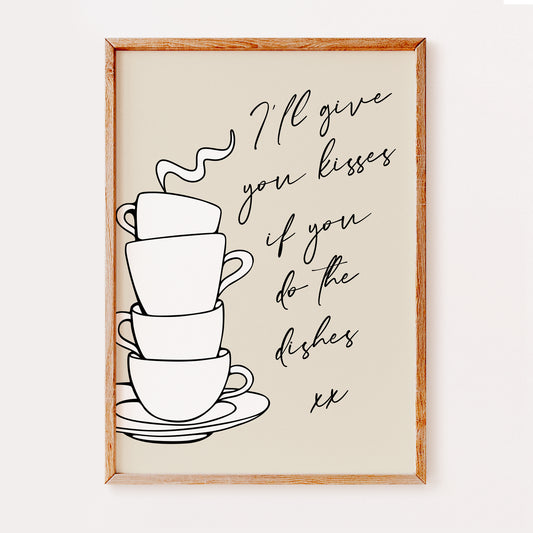 I'll give
you kisses
if you
do the
dishes
xx